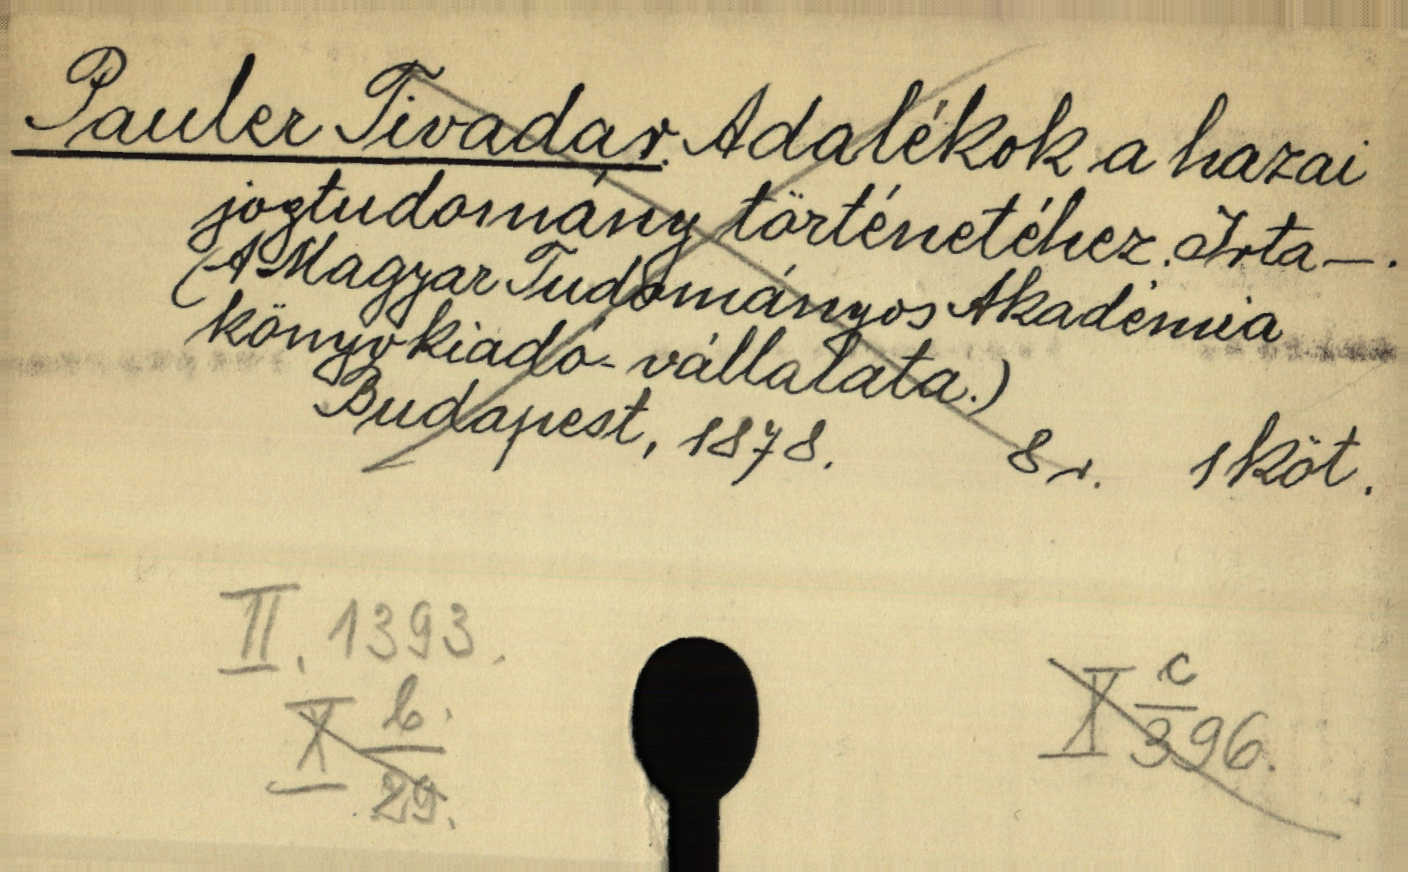 Pauler Tivadar. Adalékok a hazai
jogtudomány történetéhez. Irta —.
(A Magyar Tudományos Akadémia
könyvkiadó-vállalata.)
Budapest, 1878. 8 r. 1 köt.
II. 1393.
X b. 29.
X c 396.